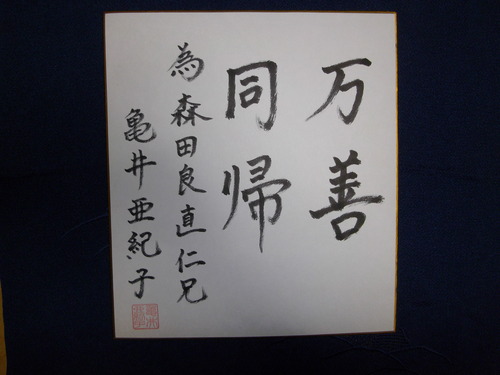 万善
同帰
為森田良直仁兄
亀井亜紀子